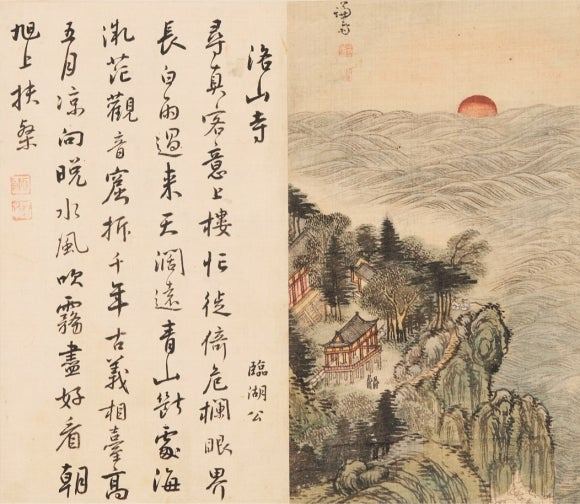 謙斎
洛山寺
臨湖公
尋真客意上樓忙徙倚危欄眼界
長白雨過来天濶遠青山断處海
渺茫觀音窟拆千年古義相臺高
五月凉向晚水風吹霧盡好看朝
旭上扶桒